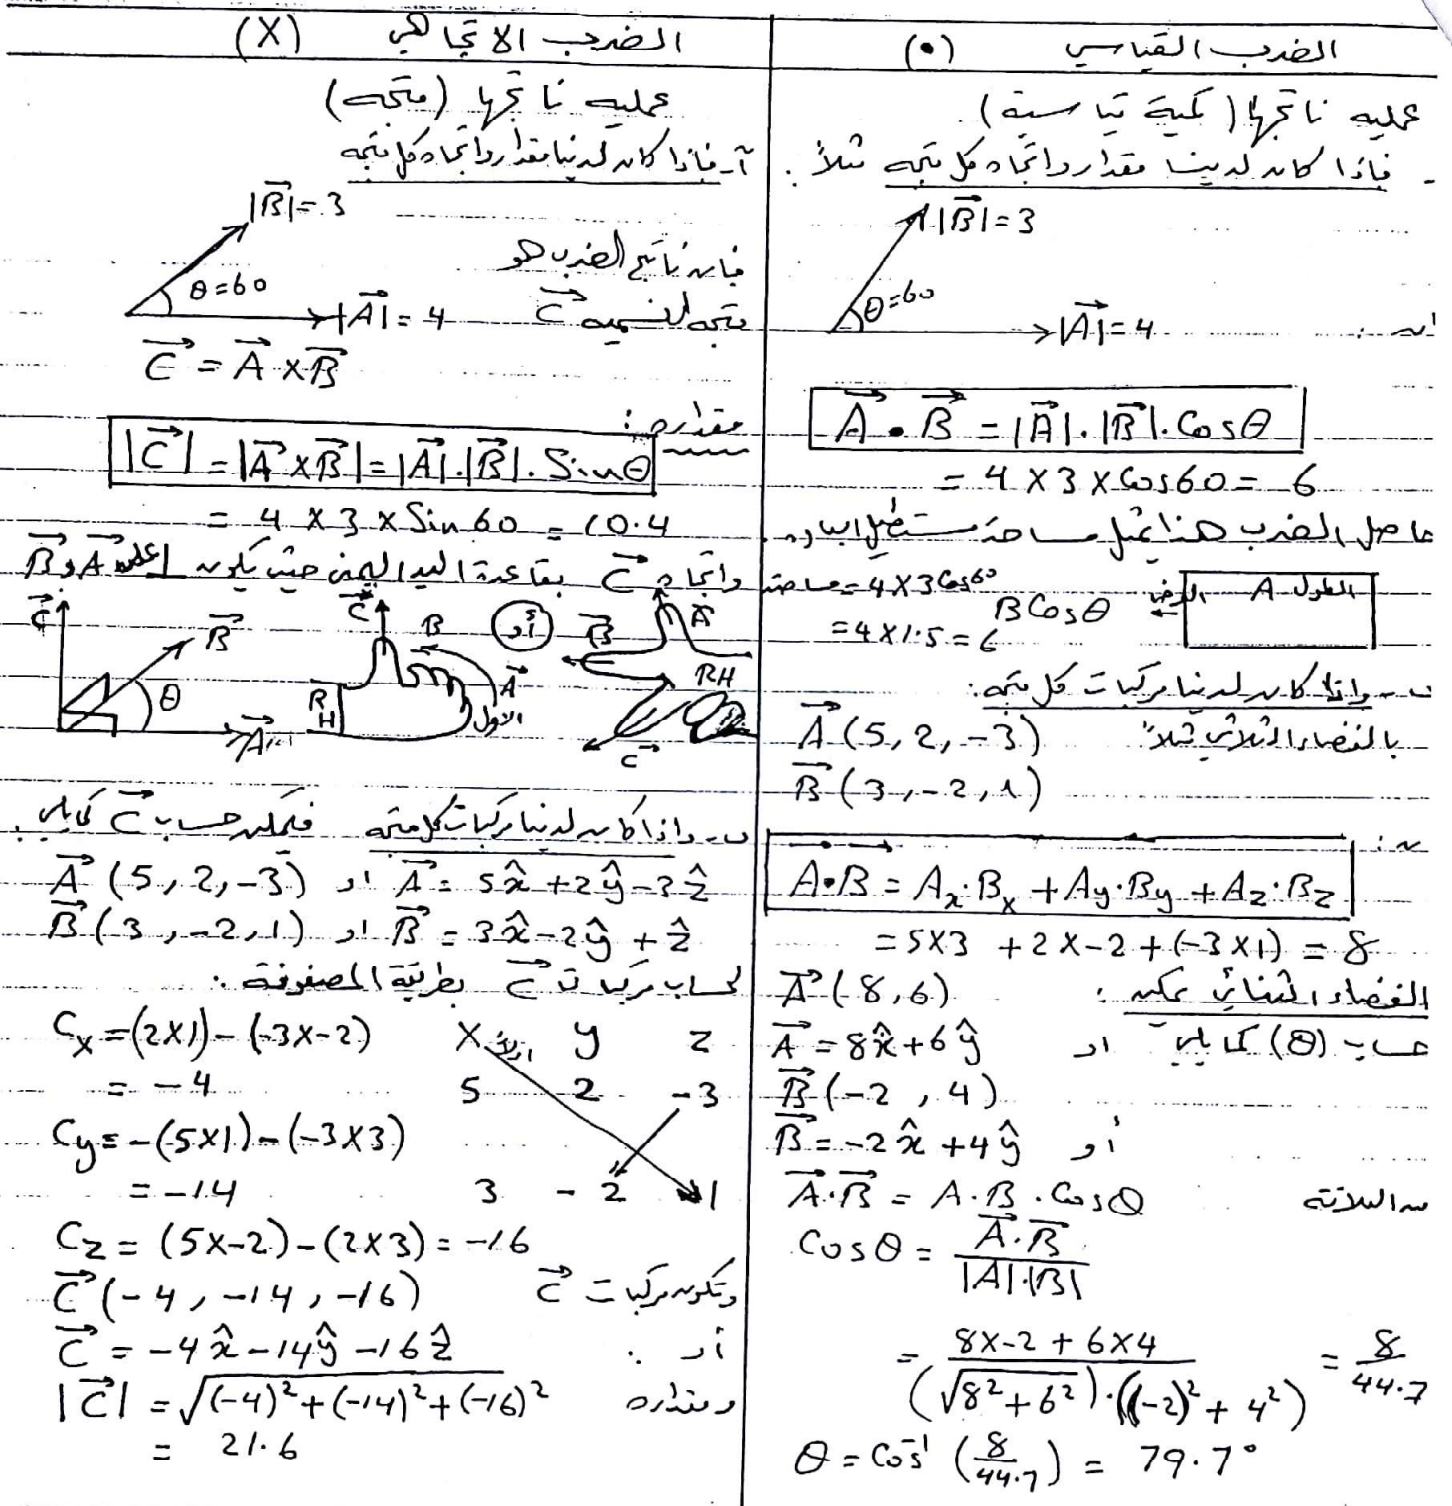 الضرب القياسي (•)
عمليه ناتجها (كمية قياسية)
- فإذا كان لدينا مقدار واتجاه كل متجه مثلاً :
|B| = 3
θ = 60
|A| = 4
A • B = |A| . |B| . Cos θ
= 4 × 3 × Cos 60 = 6
حاصل الضرب هنا يمثل مساحة مستطيل
الطول A العرض B Cos θ
مساحته = 4 × 3 Cos 60
= 4 × 1.5 = 6
ب - واذا كان لدينا مركبات كل متجه :
بالفضاء الثلاثي مثلاً
A (5, 2, -3)
B (3, -2, 1)
A • B = Ax . Bx + Ay . By + Az . Bz
= 5×3 + 2×-2 + (-3×1) = 8
الفضاء الثنائي يمكن : A (8, 6)
حساب (θ) كما يلي او A = 8x̂ + 6ŷ
B (-2, 4)
أو B = -2x̂ + 4ŷ
A . B = A . B . Cos θ
Cos θ = A . B / |A| . |B|
= 8×-2 + 6×4 / (√8² + 6²) . ((-2)² + 4²) = 8 / 44.7
θ = Cos⁻¹ (8 / 44.7) = 79.7°
الضرب الاتجاهي (X)
عمليه ناتجها (متجه)
آ- فإذا كان لدينا مقدار واتجاه كل متجه
|B| = 3
θ = 60
|A| = 4
فان ناتج الضرب هو
متجه لنسميه C
C = A × B
مقداره :
|C| = |A × B| = |A| . |B| . Sin θ
= 4 × 3 × Sin 60 = 10.4
واتجاه C بقاعدة اليد اليمنى حيث يكون A و B
C B θ A
C B A RH الاول
أو
B A RH C
ب - واذا كان لدينا مركبات كل متجه فيمكن حساب C كما يلي .
A (5, 2, -3) او A = 5x̂ + 2ŷ - 3ẑ
B (3, -2, 1) او B = 3x̂ - 2ŷ + ẑ
لحساب مركبات C بطريقة المصفوفة :
x y z
5 2 -3
3 -2 1
Cx = (2×1) - (-3×-2)
= -4
Cy = -(5×1) - (-3×3)
= -14
Cz = (5×-2) - (2×3) = -16
وتكون مركبات C C (-4, -14, -16)
أو . C = -4x̂ - 14ŷ - 16ẑ
ومقداره |C| = √(-4)² + (-14)² + (-16)²
= 21.6